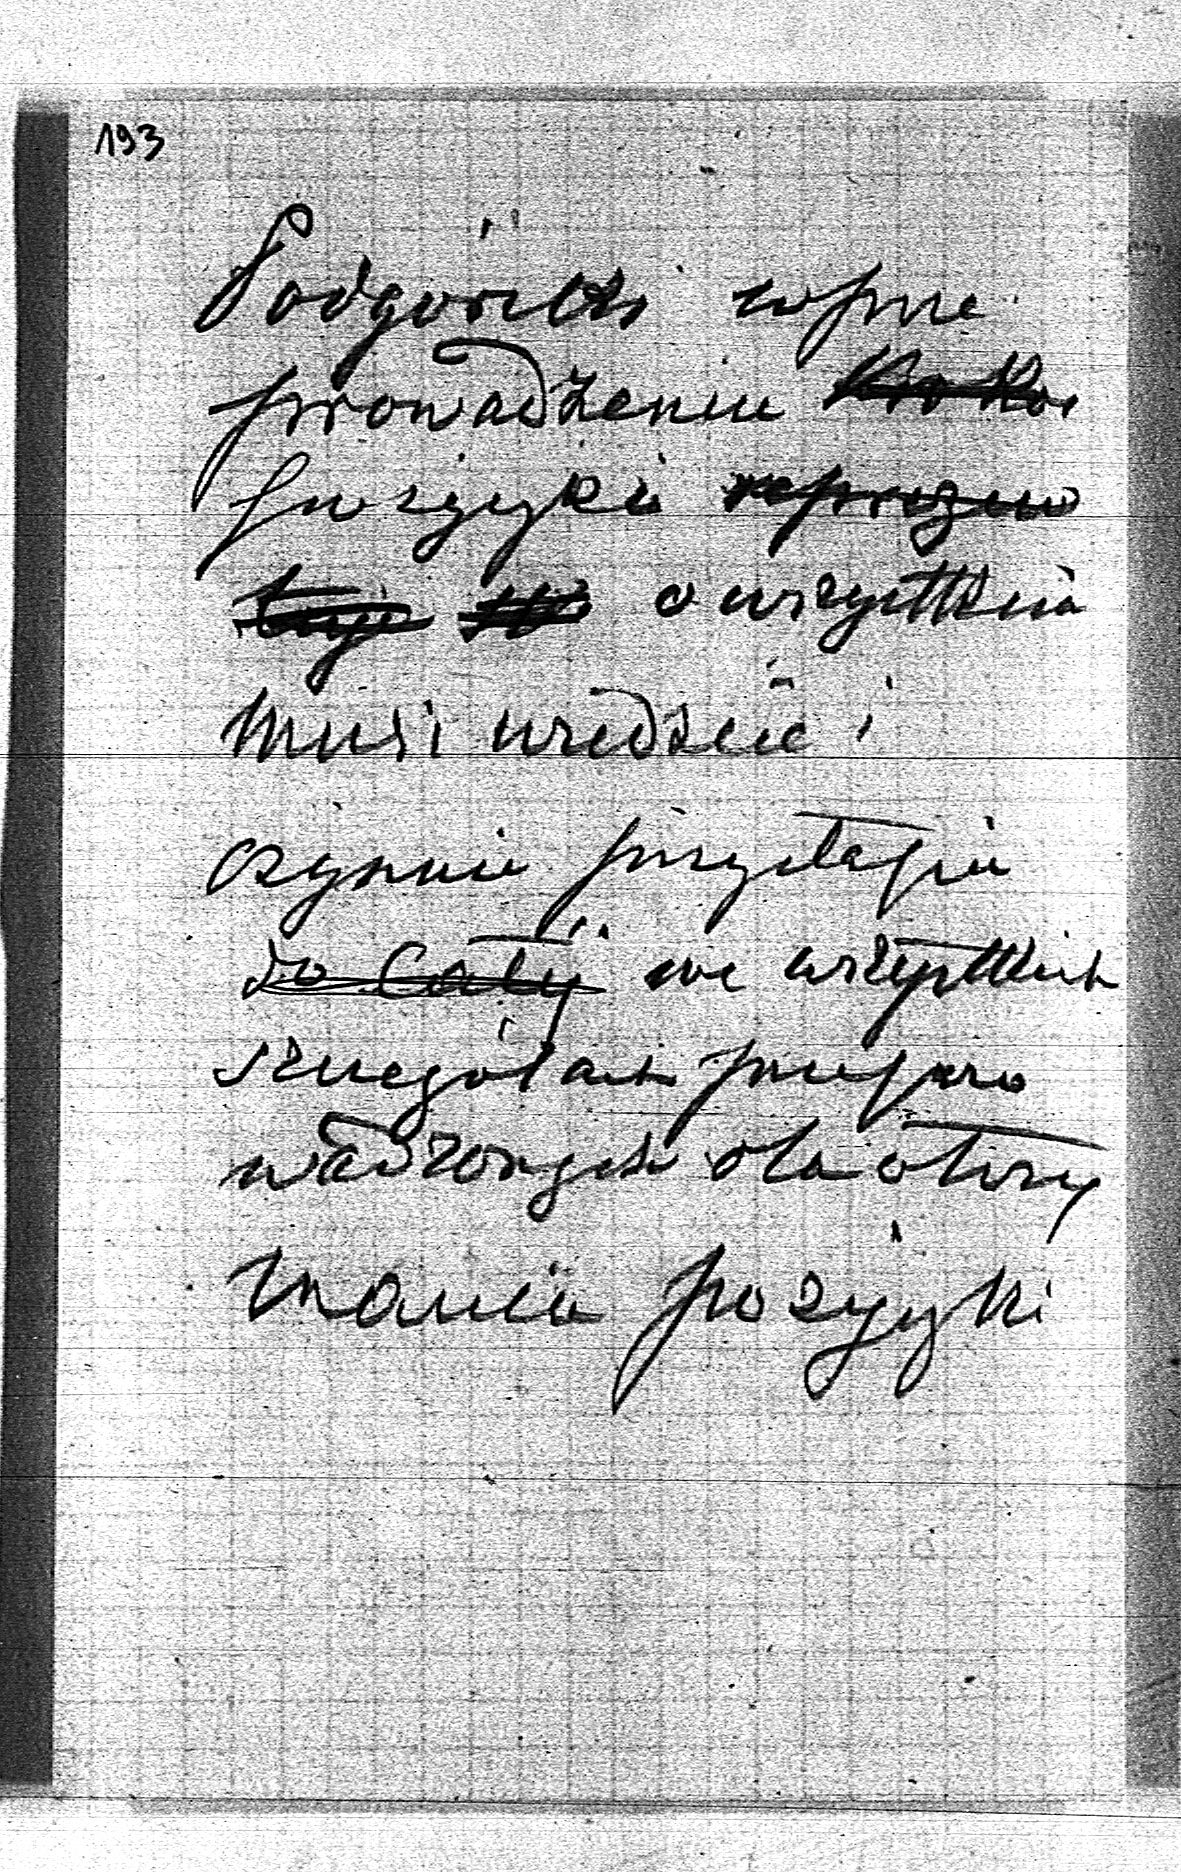 193
Podgórski w prze
prowadzeniu
pożyczki
o wszystkiem
musi wiedzieć i
czynnie
do całej we wszystkich
szczegółach przepro
wadzonych dla otrzy
mania pożyczki